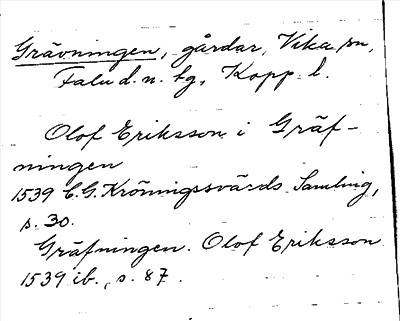 Grävningen, gårdar, Vika sn,
Falu d. n. tg, Kopp. l.
Olof Eriksson i Gräf-
ningen
1539 C.G. Kröningssvärds Samling,
s. 30.
Gräfningen. Olof Eriksson
1539 ib., s. 87.